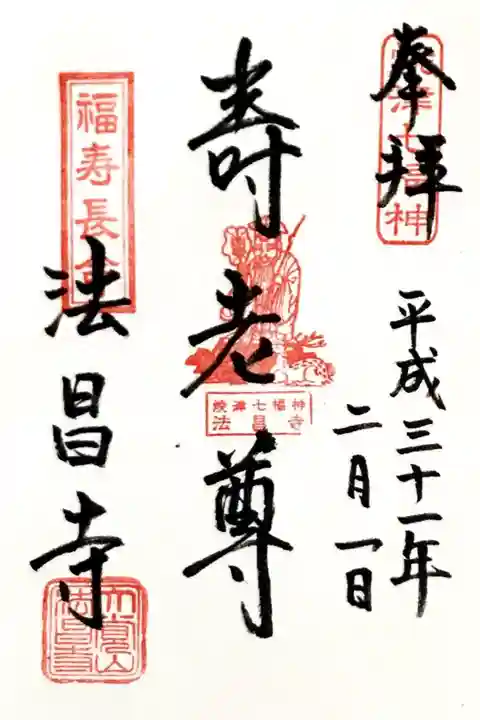 奉拝
焼津七福神
平成三十一年
二月一日
寿老尊
焼津七福神
法昌寺
福寿長命
法昌寺